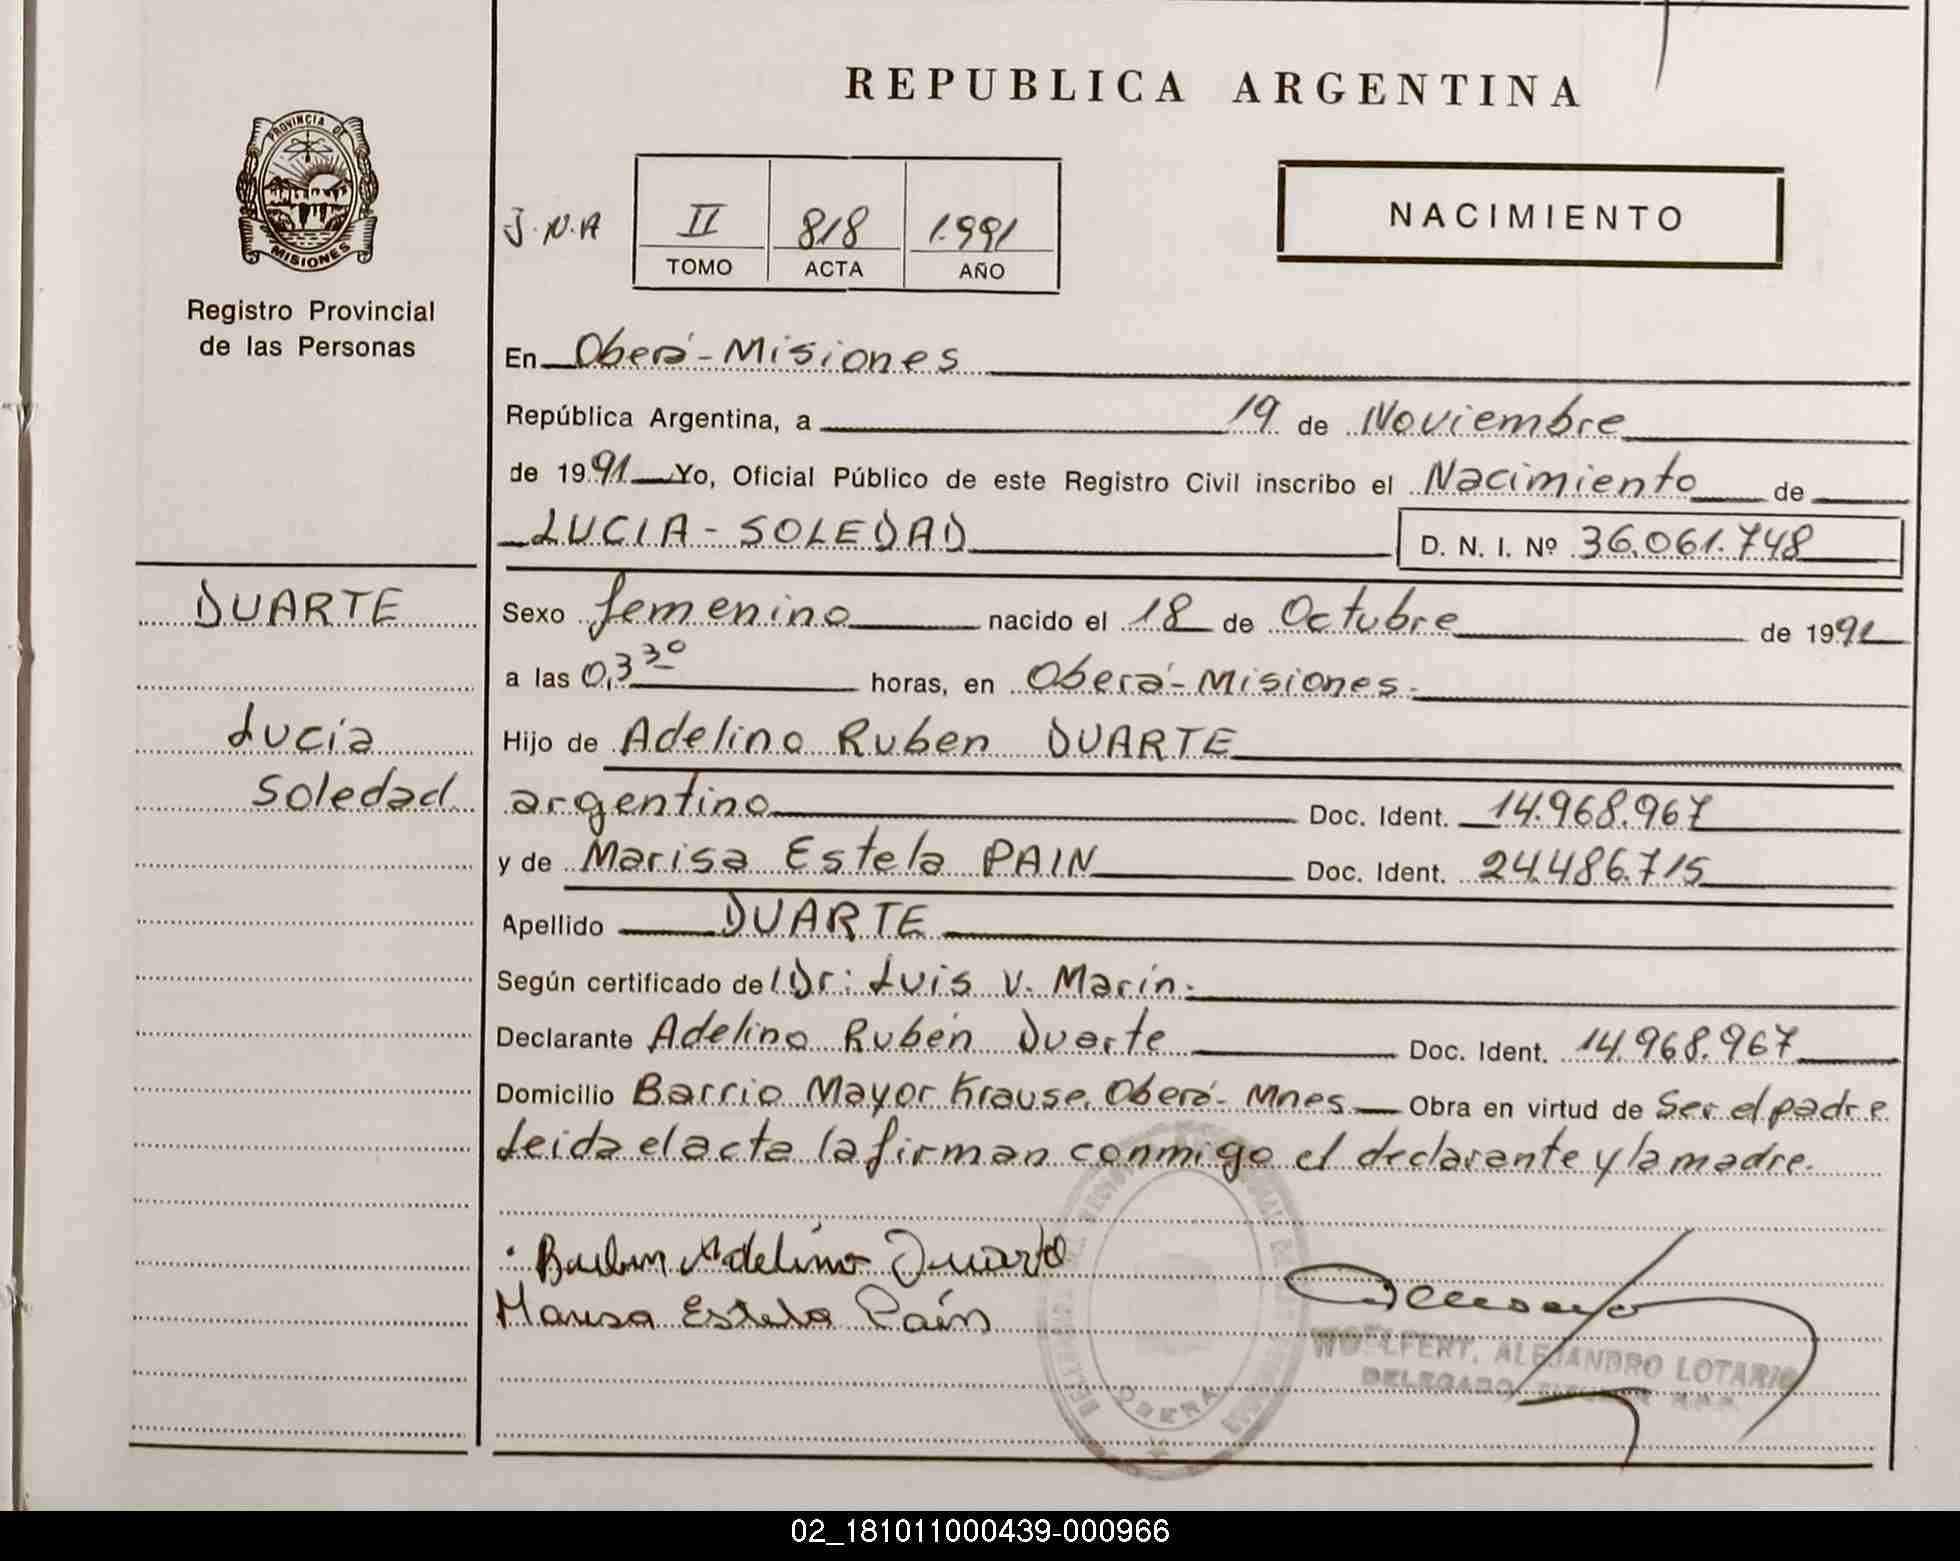 REPUBLICA ARGENTINA
PROVINCIA DE
MISIONES
Registro Provincial
de las Personas
J.N.A
II 818 1.991
TOMO ACTA AÑO
NACIMIENTO
En Oberá-Misiones
República Argentina, a 19 de Noviembre
de 1991 Yo, Oficial Público de este Registro Civil inscribo el Nacimiento de
LUCIA-SOLEDAD D. N. I. Nº 36.061.748
DUARTE
Lucia
Soledad
Sexo femenino nacido el 18 de Octubre de 1991
a las 0,3 30 horas, en Oberá-Misiones.
Hijo de Adelino Ruben DUARTE
argentino Doc. Ident. 14.968.967
y de Marisa Estela PAIN Doc. Ident. 24.486.715
Apellido DUARTE
Según certificado de Dr: Luis V. Marín.
Declarante Adelino Rubén Duarte Doc. Ident. 14.968.967
Domicilio Barrio Mayor Krause. Oberá- Mnes Obra en virtud de Ser el padre
Leida el acta la firman conmigo el declarante y la madre.
Adelino Duarte
Marisa Estela Paín
OBERA
WOELFERT, ALEJANDRO LOTARIO
DELEGADO
02_181011000439-000966